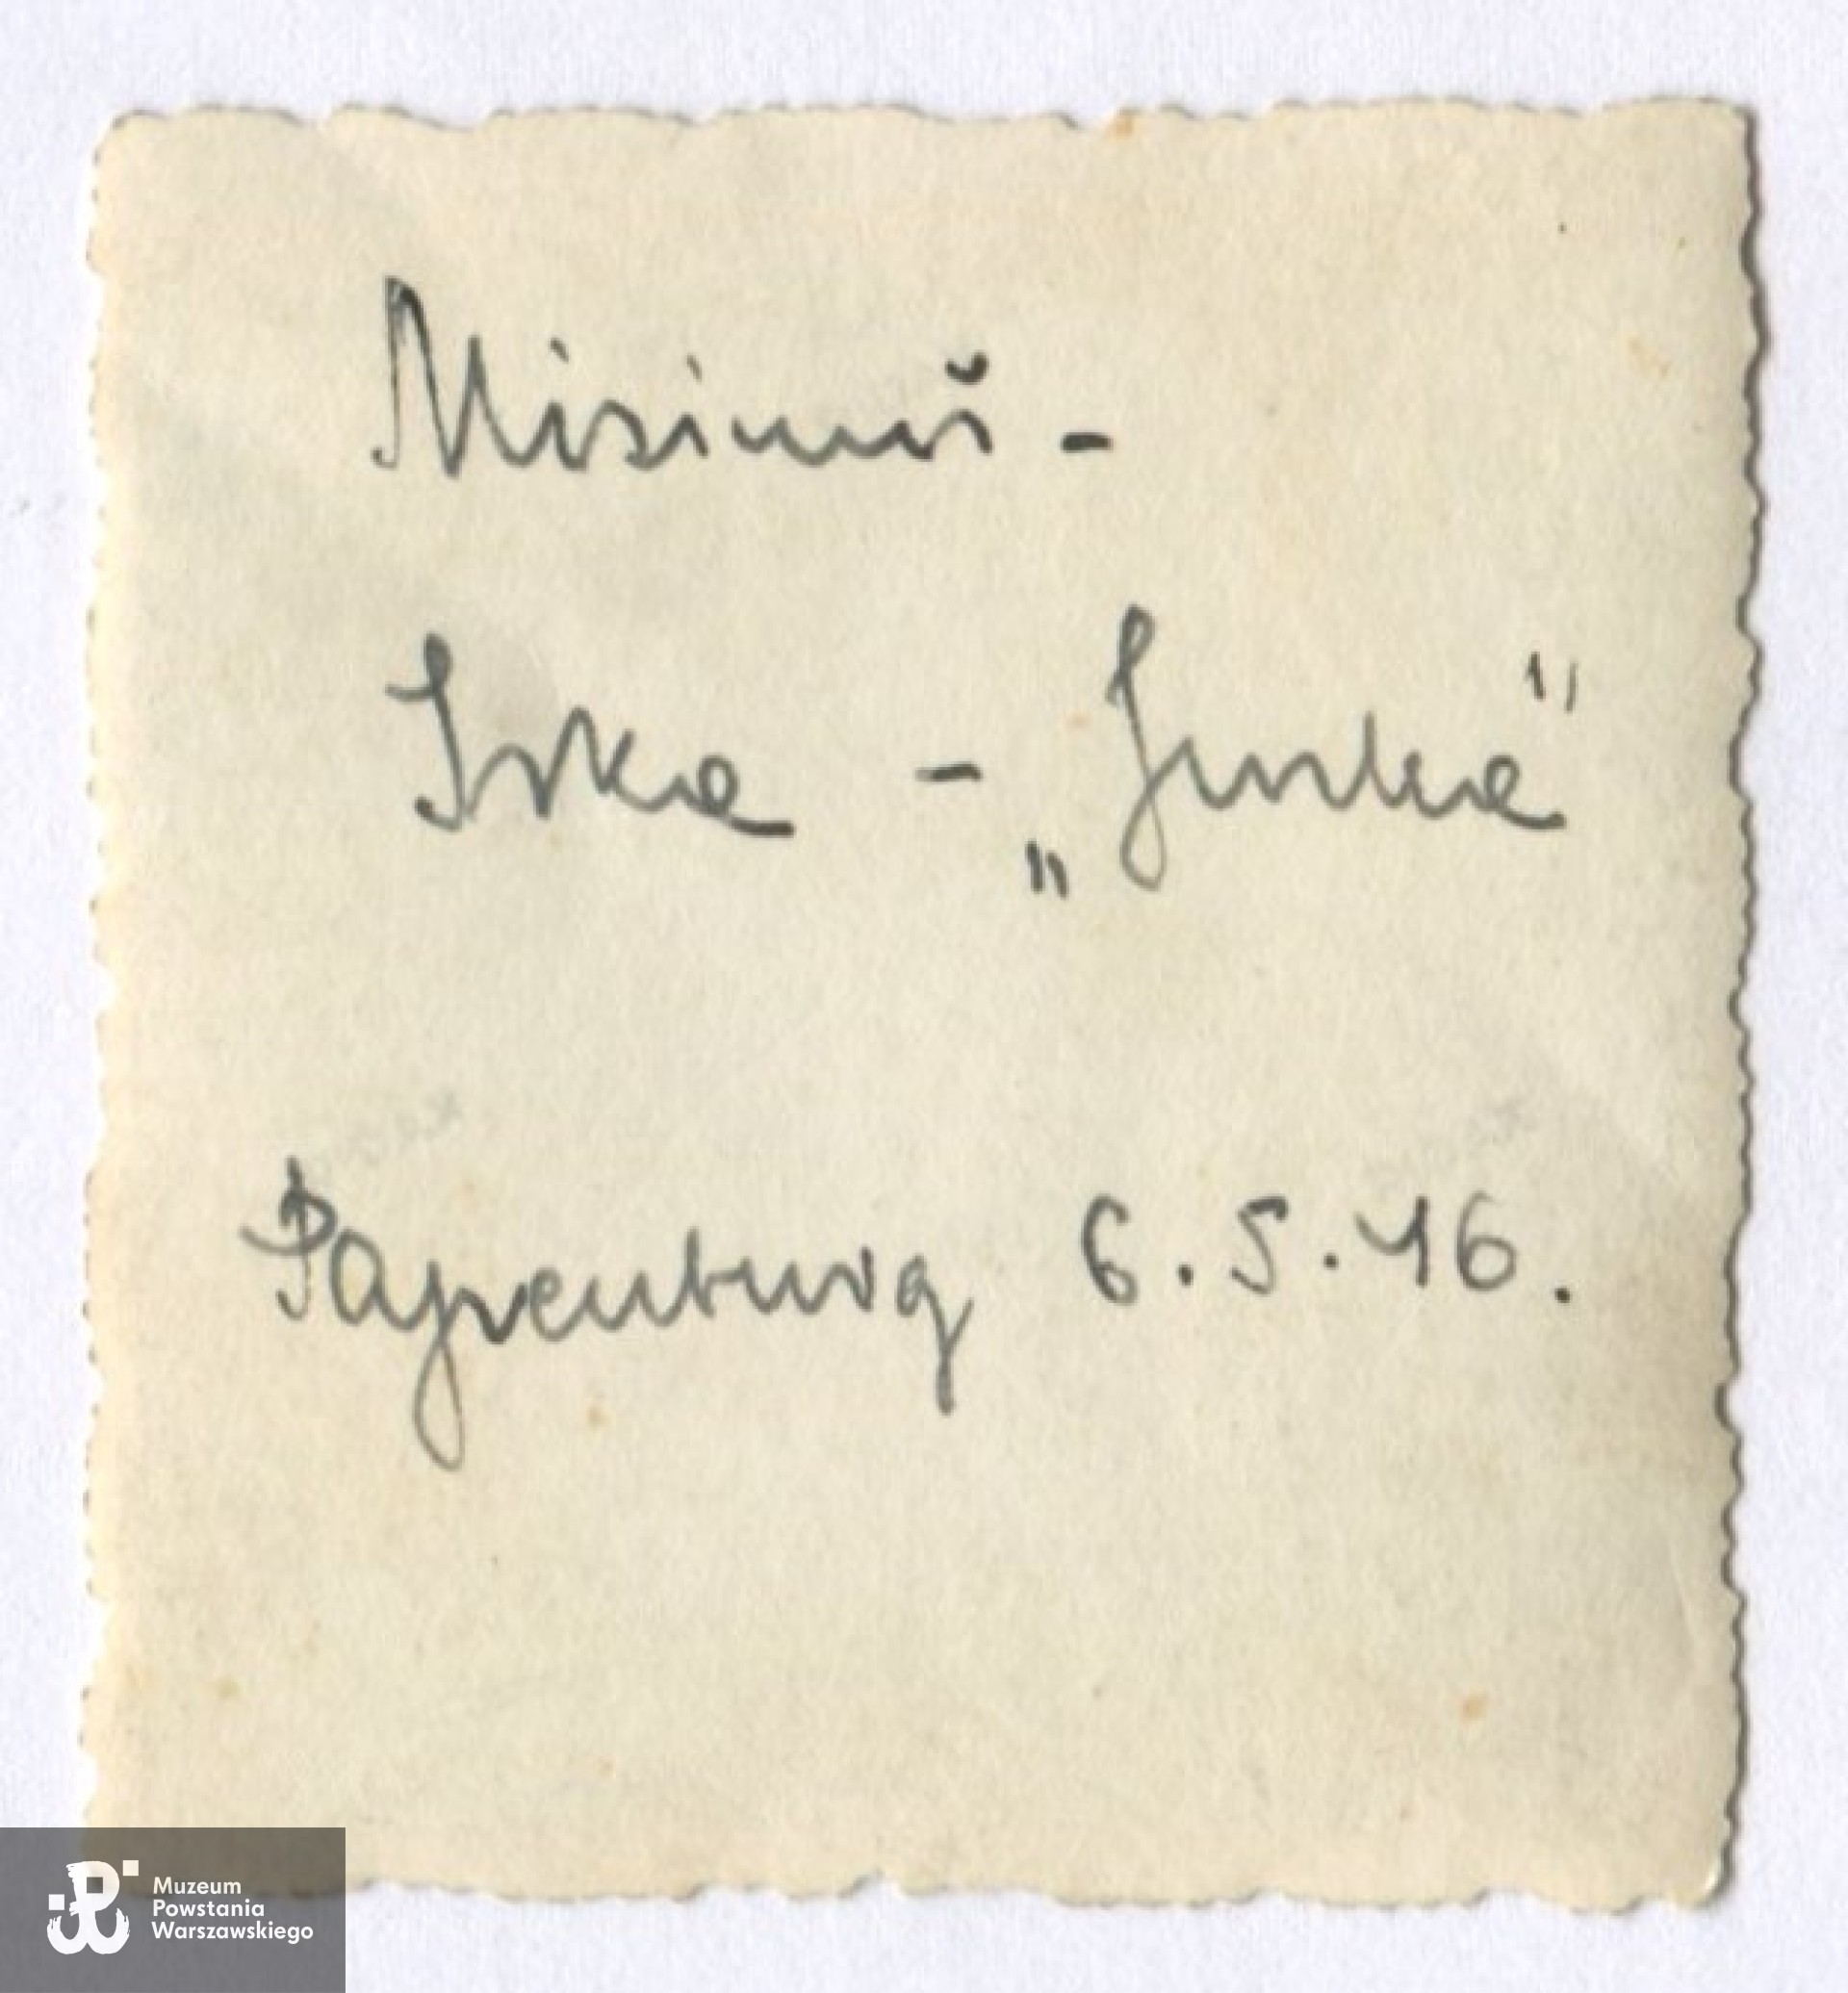 Misiuni -
Irka - „Jurka"
Papenburg 6.5.46.
Muzeum
Powstania
Warszawskiego